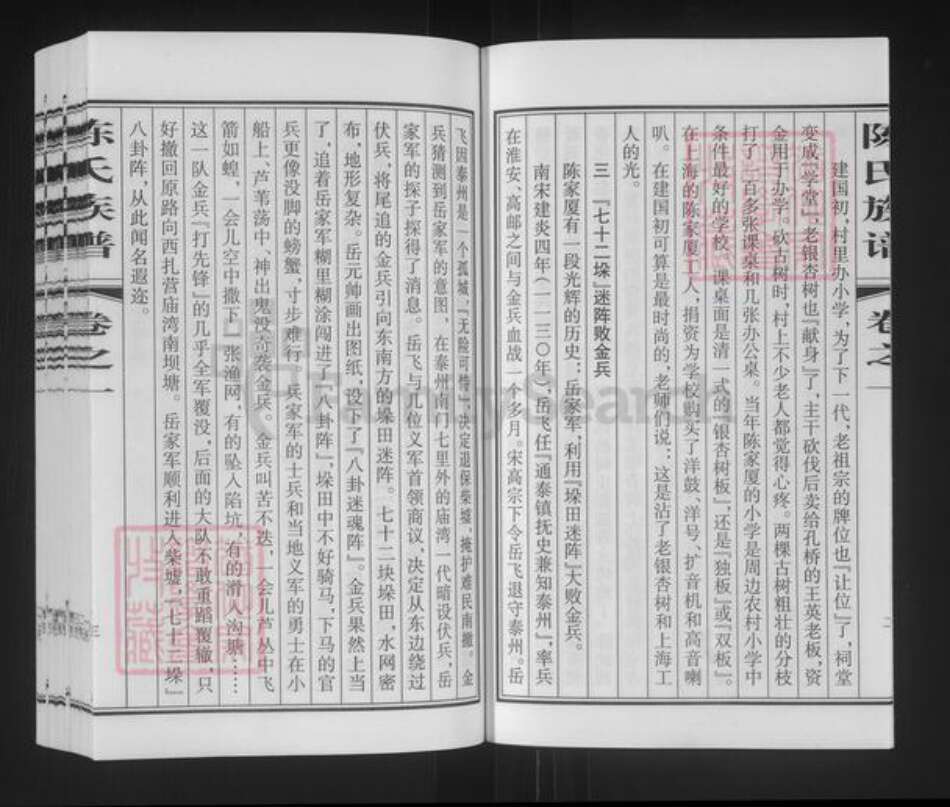 陈氏族谱 卷之一
建国初，村里办小学，为了下一代，老祖宗的牌位也『让位』了，祠堂
变成『学堂』，老银杏树也『献身』了，主干砍伐后卖给孔桥的王英老板，资
金用于办学。砍古树时，村上不少老人都觉得心疼。两棵古树粗壮的分枝
打了一百多张课桌和几张办公桌。当年陈家厦的小学是周边农村小学中
条件最好的学校，课桌面是清一式的『银杏树板』，还是『独板』或『双板』。
在上海的陈家厦工人，捐资为学校购买了洋鼓、洋号、扩音机和高音喇
叭。在建国初可算是最时尚的，老师们说：这是沾了老银杏树和上海工
人的光。
三 『七十二垛』迷阵败金兵
陈家厦有一段光辉的历史：岳家军，利用『垛田迷阵』大败金兵。
南宋建炎四年（一一三〇年），岳飞任『通泰镇抚史兼知泰州』，率兵
在淮安、高邮之间与金兵血战一个多月。宋高宗下令岳飞退守泰州。岳
飞因泰州是一个孤城，『无险可恃』，决定退保柴墟，掩护难民南撤。金
兵猜测到岳家军的意图，在泰州南门七里外的庙湾一代暗设伏兵，岳
家军的探子探得了消息。岳飞与几位义军首领商议，决定从东边绕过
伏兵，将尾追的金兵引向东南方的垛田迷阵。七十二块垛田，水网密
布，地形复杂。岳元帅画出图纸，设下了『八卦迷魂阵』。金兵果然上当
了，追着岳家军糊里糊涂闯进了『八卦阵』，垛田中不好骑马，下马的官
兵更像没脚的螃蟹，寸步难行。岳家军的士兵和当地义军的勇士在小
船上、芦苇荡中、神出鬼没奇袭金兵。金兵叫苦不迭，一会儿芦丛中飞
箭如蝗，一会儿空中撒下一张渔网，有的坠入陷坑，有的滑入沟塘……
这一队金兵『打先锋』的几乎全军覆没，后面的大队不敢重蹈覆辙，只
好撤回原路向西扎营庙湾南坝塘。岳家军顺利进入柴墟，『七十二垛』
八卦阵，从此闻名遐迩。
陈氏族谱 卷之一
三
FamilySearch